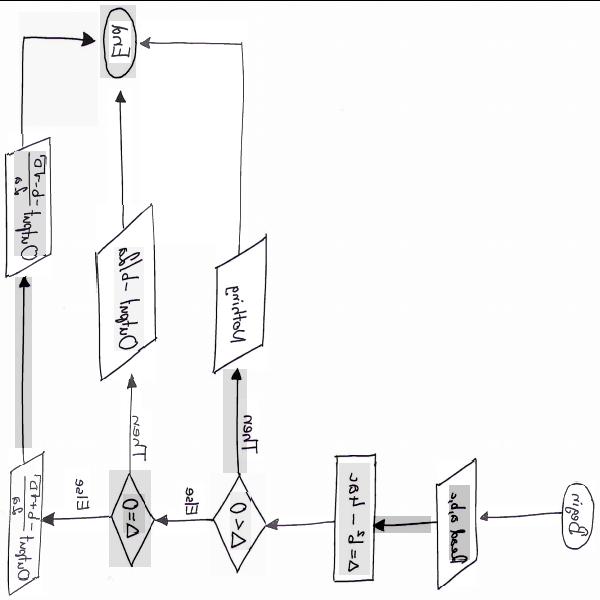 Begin
Read a,b,c
Δ=b²-4ac
Δ<0
Then
Nothing
Else
Δ=0
Then
Output -b/2a
Else
Output -b+√Δ
2a
Output -b-√Δ
2a
End